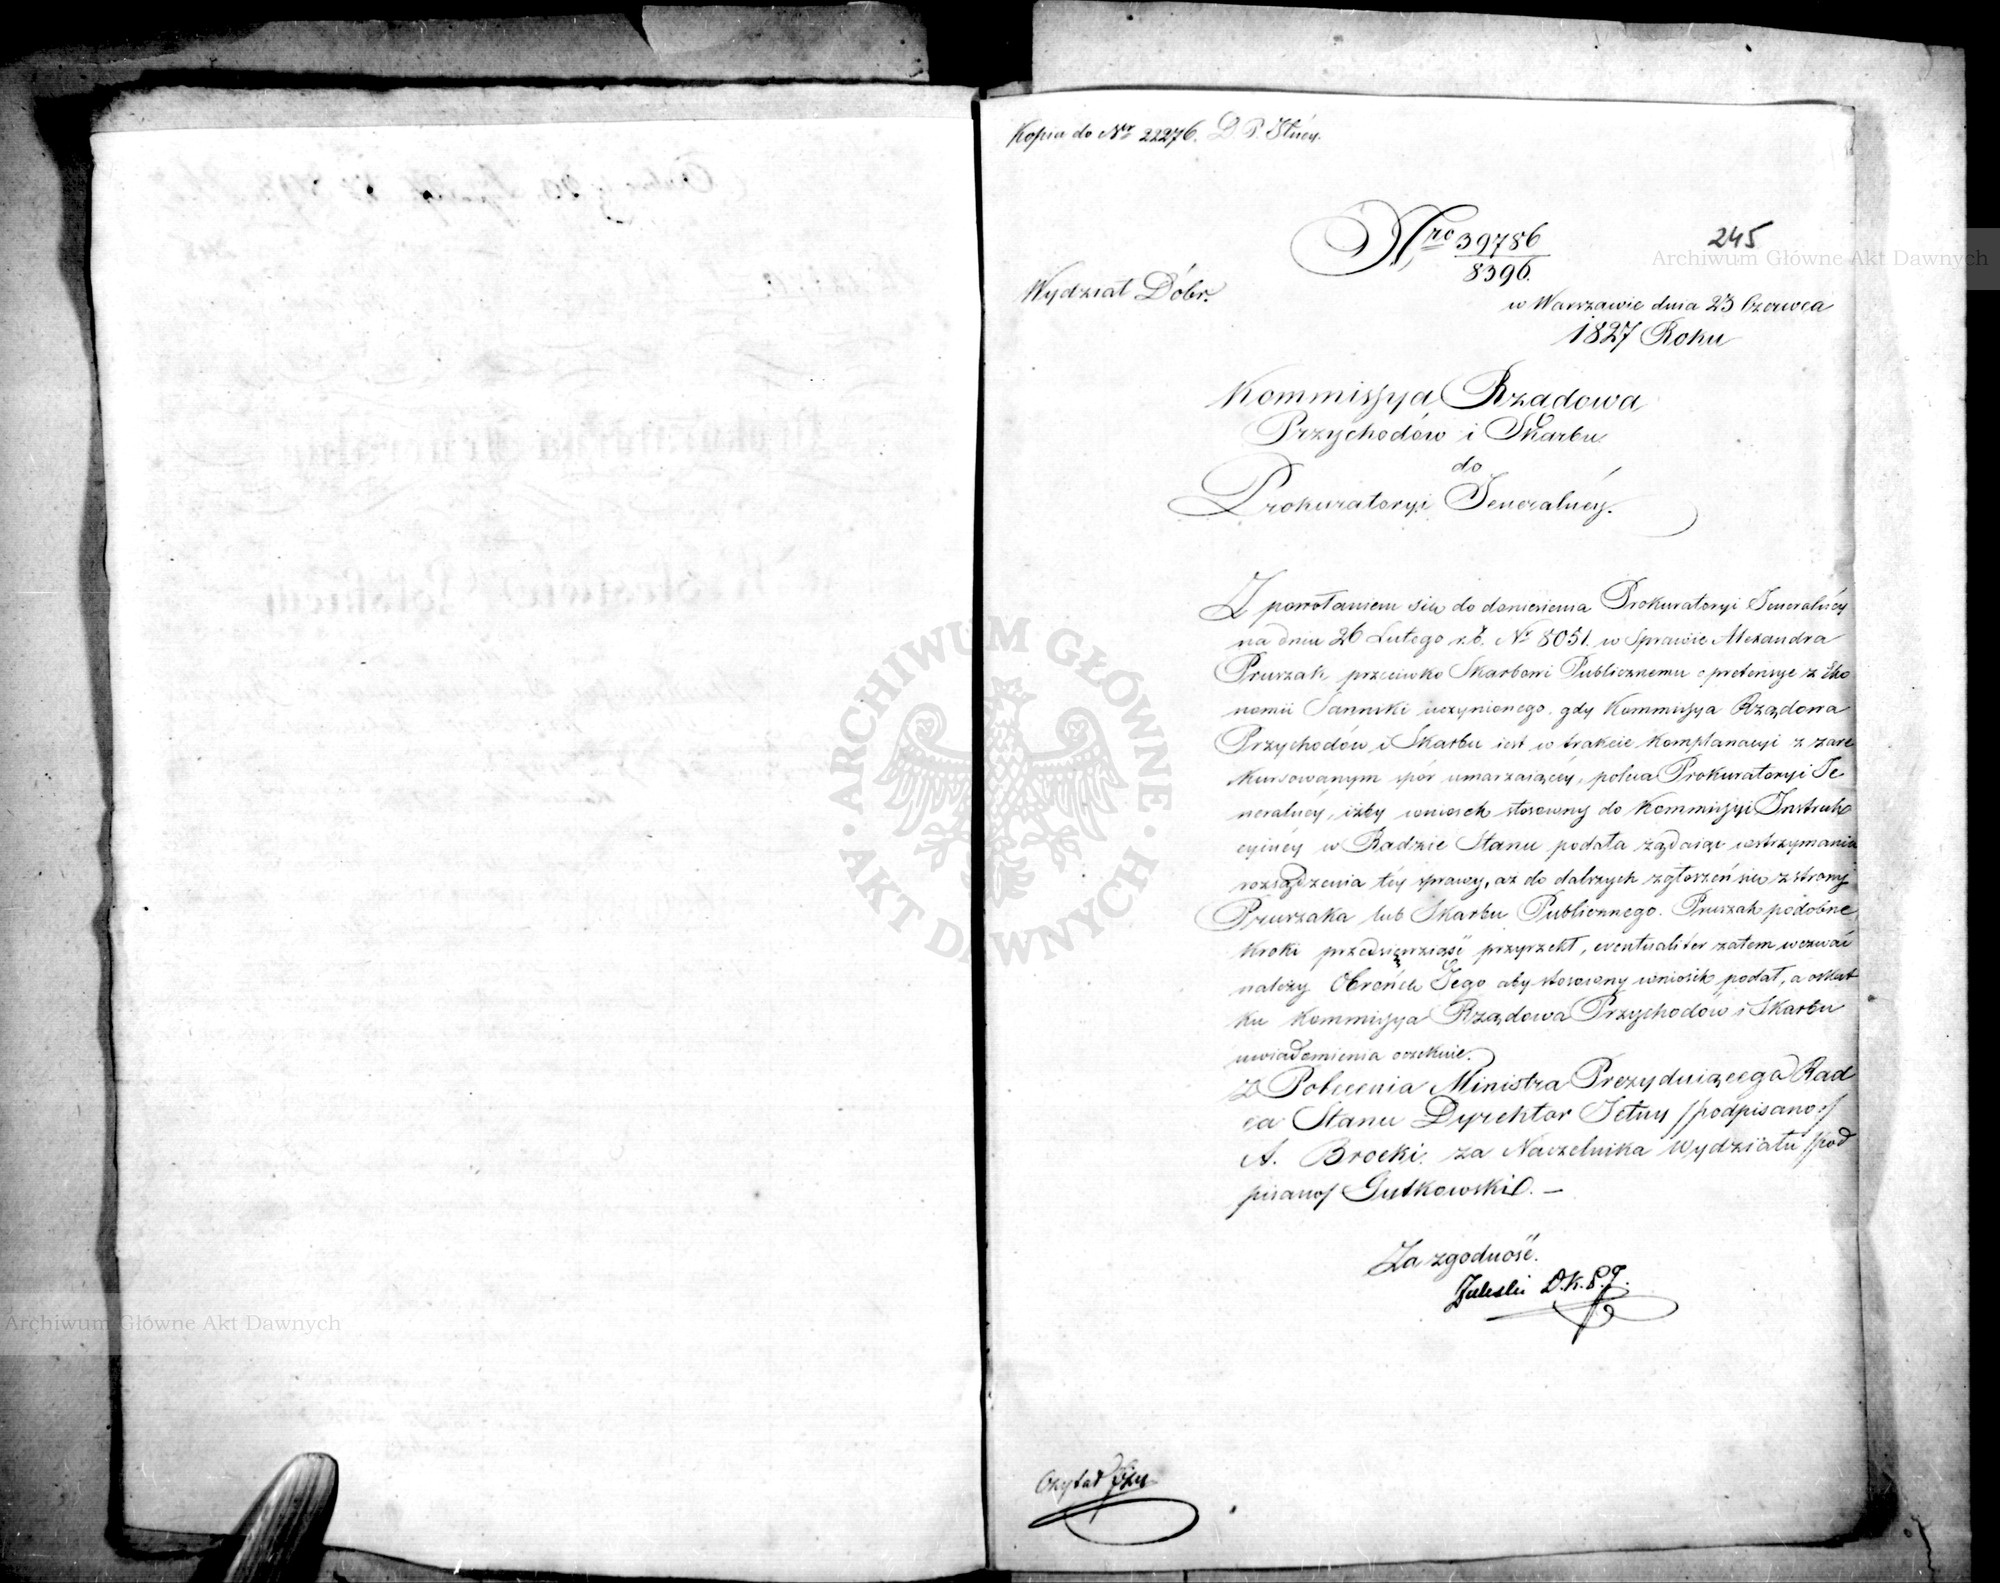 Kopia do Nr 22276. D. P. Stney.
245
Nro 39786
8396.
Wydział Dóbr.
w Warszawie dnia 23 Czerwca
1827 Roku
Kommissya Rządowa
Przychodów i Skarbu
do
Prokuratoryi Jeneralnéy.
Z powołaniem się do doniesienia Prokuratoryi Jeneralnéy
na dniu 26 Lutego r. b. Nr 8051. w sprawie Alexandra
Pruszak przeciwko Skarbowi Publicznemu o pretensye z Eko
nomii Sanniki uczynionego. gdy Kommissya Rządowa
Przychodów i Skarbu iest w trakcie komplanacyi z zare
kursowanym spór umarzaiącéy, poleca Prokuratoryi Je
neralnéy, iżby wniosek stosowny do Kommissyi Instruk
cyinéy w Radzie Stanu podała żądaiąc wstrzymania
rozsądzenia téy sprawy, aż do dalszych zgłoszeń się z strony
Pruszaka lub Skarbu Publicznego. Pruszak podobne
kroki przedsięwziąść przyrzekł, eventualiter zatem wezwać
należy Obrońcę Jego aby stosowny wniosek podał, a o skut
ku Kommissya Rządowa Przychodów i Skarbu
uwiadomienia oczekuie.
z Polecenia Ministra Prezyduiącego Rad
ca Stanu Dyrektor Jełny /podpisano/
A. Brocki. za Naczelnika Wydziału /pod
pisano/ Gutkowski. —
Za zgodność.
D. K. P. J.
Czytał
Archiwum Główne Akt Dawnych
Archiwum Główne Akt Dawnych
ARCHIWUM GŁÓWNE
AKT DAWNYCH